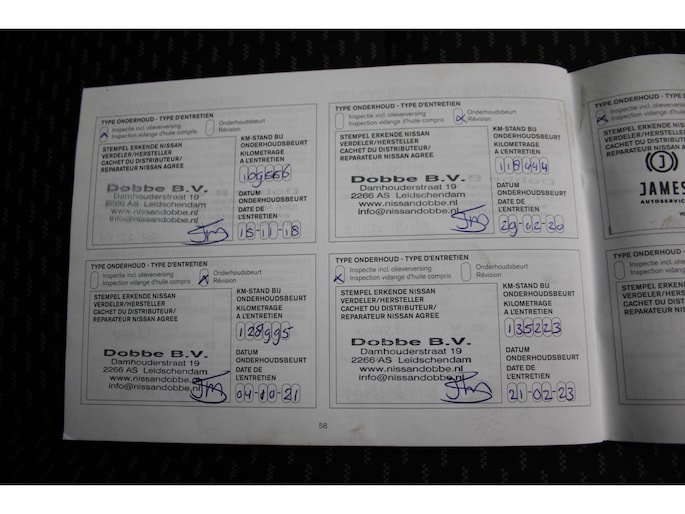 TYPE ONDERHOUD - TYPE D'ENTRETIEN
Inspectie incl. olieverversing
Inspection vidange d'huile compris
Onderhoudsbeurt
Révision
STEMPEL ERKENDE NISSAN
VERDELER/HERSTELLER
CACHET DU DISTRIBUTEUR/
REPARATEUR NISSAN AGREE
KM-STAND BIJ
ONDERHOUDSBEURT
KILOMETRAGE
A L'ENTRETIEN
Dobbe B.V.
Damhouderstraat 19
2266 AS Leidschendam
www.nissandobbe.nl
info@nissandobbe.nl
DATUM
ONDERHOUDSBEURT
DATE DE
L'ENTRETIEN
15-11-18
TYPE ONDERHOUD - TYPE D'ENTRETIEN
Inspectie incl. olieverversing
Inspection vidange d'huile compris
Onderhoudsbeurt
Révision
STEMPEL ERKENDE NISSAN
VERDELER/HERSTELLER
CACHET DU DISTRIBUTEUR/
REPARATEUR NISSAN AGREE
KM-STAND BIJ
ONDERHOUDSBEURT
KILOMETRAGE
A L'ENTRETIEN
118444
Dobbe B.V.
Damhouderstraat 19
2266 AS Leidschendam
www.nissandobbe.nl
info@nissandobbe.nl
DATUM
ONDERHOUDSBEURT
DATE DE
L'ENTRETIEN
29-02-20
TYPE ONDERHOUD - TYPE D'ENTRETIEN
Inspectie incl. olieverversing
Inspection vidange d'huile compris
Onderhoudsbeurt
Révision
STEMPEL ERKENDE NISSAN
VERDELER/HERSTELLER
CACHET DU DISTRIBUTEUR/
REPARATEUR NISSAN AGREE
KM-STAND BIJ
ONDERHOUDSBEURT
KILOMETRAGE
A L'ENTRETIEN
128995
Dobbe B.V.
Damhouderstraat 19
2266 AS Leidschendam
www.nissandobbe.nl
info@nissandobbe.nl
DATUM
ONDERHOUDSBEURT
DATE DE
L'ENTRETIEN
04-10-21
TYPE ONDERHOUD - TYPE D'ENTRETIEN
Inspectie incl. olieverversing
Inspection vidange d'huile compris
Onderhoudsbeurt
Révision
STEMPEL ERKENDE NISSAN
VERDELER/HERSTELLER
CACHET DU DISTRIBUTEUR/
REPARATEUR NISSAN AGREE
KM-STAND BIJ
ONDERHOUDSBEURT
KILOMETRAGE
A L'ENTRETIEN
135223
Dobbe B.V.
Damhouderstraat 19
2266 AS Leidschendam
www.nissandobbe.nl
info@nissandobbe.nl
DATUM
ONDERHOUDSBEURT
DATE DE
L'ENTRETIEN
21-02-23
58
TYPE ONDERHOUD - TYPE
Inspectie incl. olieverversing
Inspection vidange d'huile
STEMPEL ERKENDE NISSAN
VERDELER/HERSTELLER
CACHET DU DISTRIBUTEUR/
REPARATEUR NISSAN AGREE
J
JAMES
AUTOSERVICE
TYPE ONDERHOUD - TYPE D'
Inspectie incl. olieverversing
Inspection vidange d'huile
STEMPEL ERKENDE NISSAN
VERDELER/HERSTELLER
CACHET DU DISTRIBUTEUR/
REPARATEUR NISSAN AGREE